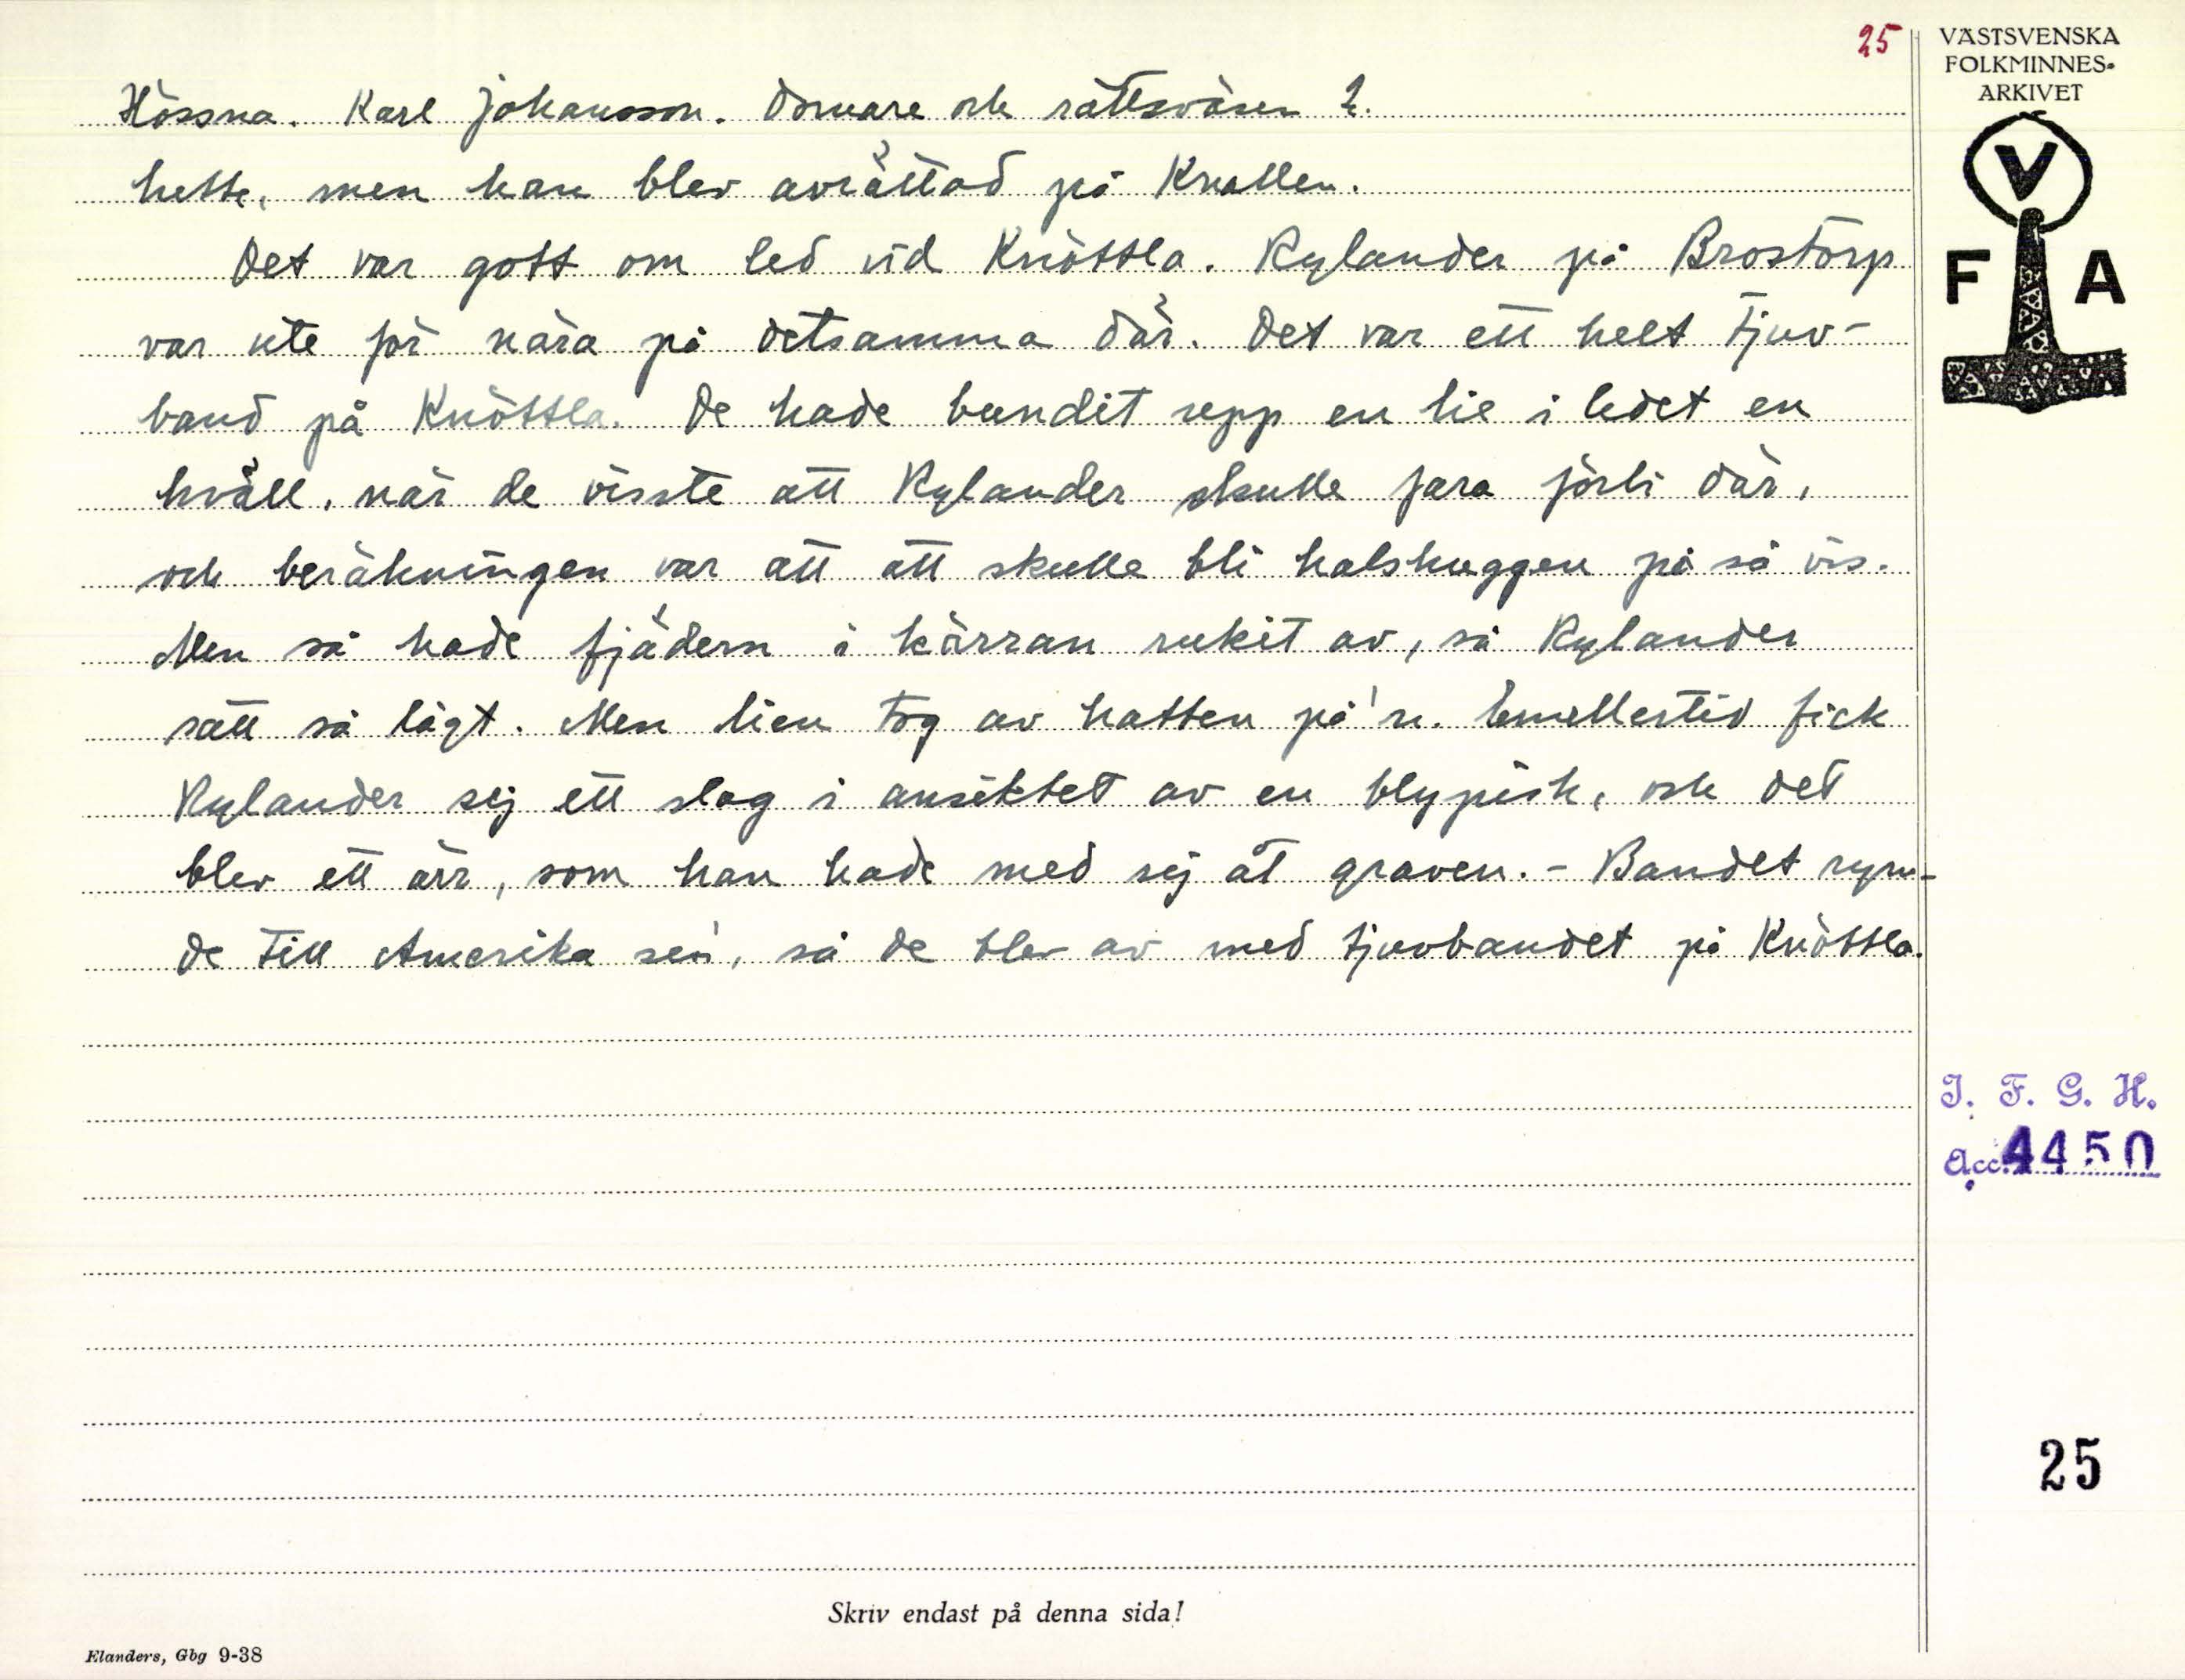 25
VÄSTSVENSKA
FOLKMINNES-
ARKIVET
V
F A
Hössna. Karl Johansson. Domare och rättsväsen 2.
hette, men han blev avrättad på Knallen.
Det var gott om led vid Knöttla. Rylander på Brostorp
var ute för nära på detsamma där. Det var ett helt tjuv-
band på Knöttla. De hade bundit upp en lie i ledet en
kväll, när de visste att Rylander skulle fara förbi där,
och beräkningen var att att skulle bli halshuggen på så vis.
Men så hade fjädern i kärran rukit av, så Rylander
satt så lågt. Men lien tog av hatten på'n. Emellertid fick
Rylander sej ett slag i ansiktet av en blypisk, och det
blev ett ärr, som han hade med sej åt graven. - Bandet rym-
de till Amerika sen, så de blev av med tjuvbandet på Knöttla.
I. F. G. H.
Acc. 4450
25
Skriv endast på denna sida!
Elanders, Gbg 9-38